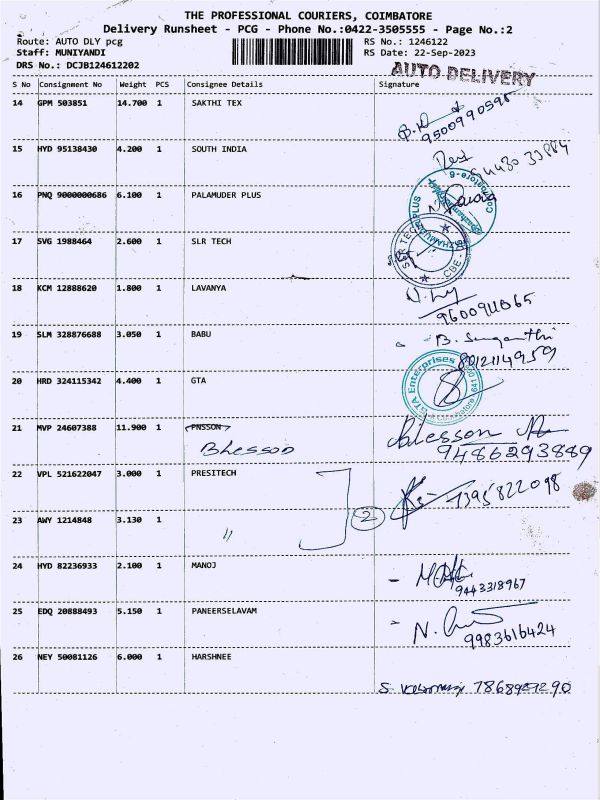 THE PROFESSIONAL COURIERS, COIMBATORE
Delivery Runsheet - PCG - Phone No.:0422-3505555 - Page No.:2
Route: AUTO DLY pcg RS No.: 1246122
Staff: MUNIYANDI RS Date: 22-Sep-2023
DRS No.: DCJB124612202
AUTO DELIVERY
S No Consignment No Weight PCS Consignee Details Signature
14 GPM 503851 14.700 1 SAKTHI TEX
9500990595
15 HYD 95138430 4.200 1 SOUTH INDIA
16 PNQ 9000000686 6.100 1 PALAMUDER PLUS
17 SVG 1988464 2.600 1 SLR TECH
SLR TECH
CBE
18 KCM 12888620 1.800 1 LAVANYA
19 SLM 328876688 3.050 1 BABU
B. Suganthi
20 HRD 324115342 4.400 1 GTA
GTA Enterprises
21 MVP 24607388 11.900 1 PNSSON
Blesson Blesson
9486293889
22 VPL 521622047 3.000 1 PRESITECH
7395822098
2
23 AWY 1214848 3.130 1 "
24 HYD 82236933 2.100 1 MANOJ
9443318967
25 EDQ 20888493 5.150 1 PANEERSELAVAM
9983616424
26 NEY 50081126 6.000 1 HARSHNEE